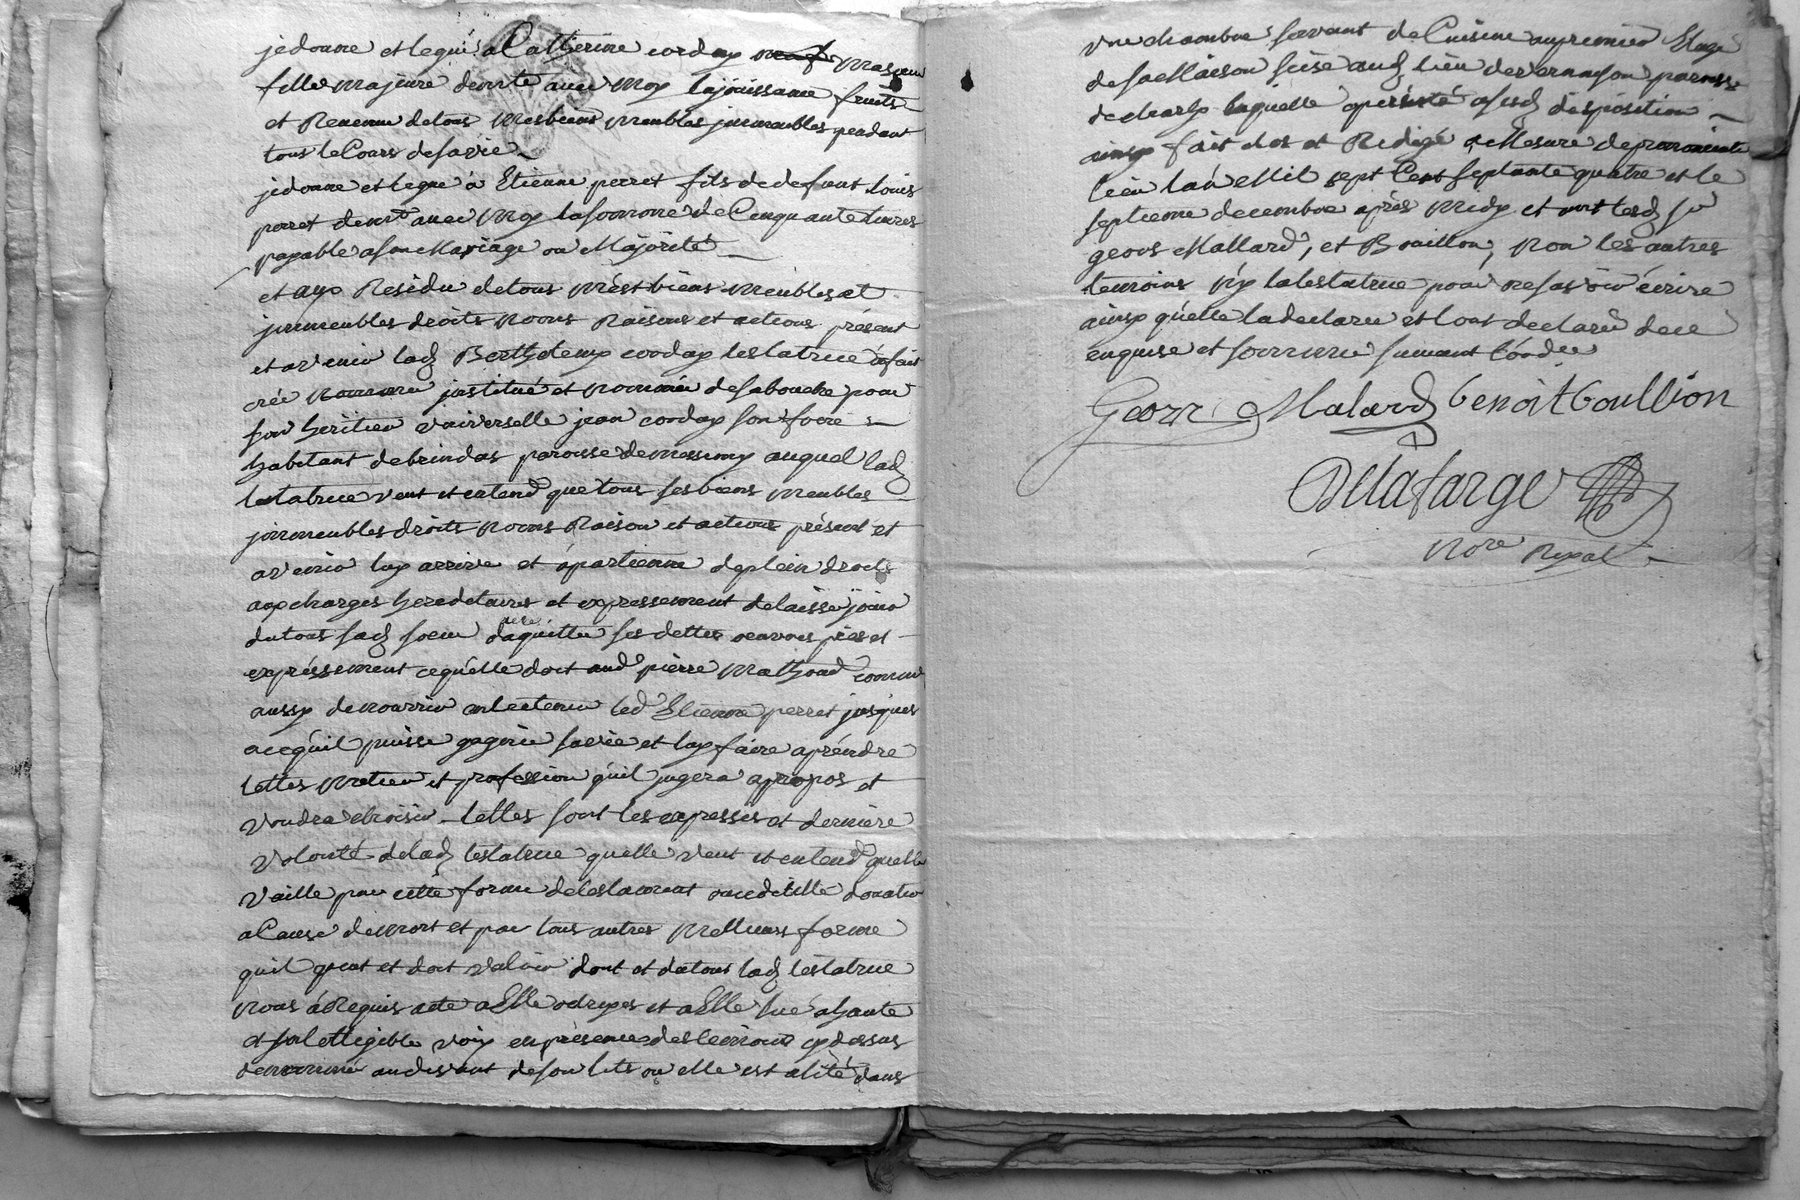 je donne et legue a Catherine corday ma soeur
fille majeure demte avec moy la jouissance fruits
et Revenu de tous mes biens meubles jmmeubles pendant
tous le Cours de sa vie
je donne et legue à Etienne perret fils de defunt Louis
perret demte avec moy la somme de Cinquante livres
payable a son Mariage ou Majorité
et au Residu de tous mes biens meubles et
jmmeubles droits noms Raisons et actions présent
et avenir lad Berthelemy corday testatrice a fait
crée nommée justitué et nommée de sa bouche pour
son heritier vniverselle jean corday son frere
habitant de brindas paroisse de messimy auquel lad
testatrice veut et entend que tous ses biens meubles
jmmeubles droits noms Raison et actions présent et
avenir luy arrive et apartienne de plein droits
aux charges hereditaires et expressement de laisser jouir
du tous sad soeur d'aquitter ses dettes
expréssement ce quelle doit aud pierre comme
aussy de nourrir entretenir led Etienne perret jusques
a ce qu'il puisse gagner sa vie et luy faire apréndre
telles metier et profession qu'il jugera apropos et
voudra choisir telles sont les expresses et derniere
volonté de lad testatrice quelle veut et entend quelle
vaille par cette forme de testament codicille donation
a Cause de mort et par tous autres melleurs forme
quil peut et doit valoir dont et du tous lad testatrice
nous à Requis acte a Elle octroyes et a Elle lue a haute
et jntelligible voix en présence des temoins cy dessus
denommé au devant de son lits ou elle est alité dans
vne chambre servant de Cuisine au premier Etage
de sa Maison size aud lieu de vernayson paroisse
de charly laquelle a persisté a sesd disposition
ainsy fait clos et Redigé a Mesure de prononciation
lieu l'an Mil sept Cent septante quatre et le
septieme decembre après midy et ont lesd sr
geors Mallard, et Bouillon, non les autres
temoins ny la testatrice pour ne sasvoir écrire
ainsy quelle la declaree et l'ont declarée de ce
enquise et sommee suivant l'órdce
Georr Malard benoit boullion
Delafarge
Nore Royal